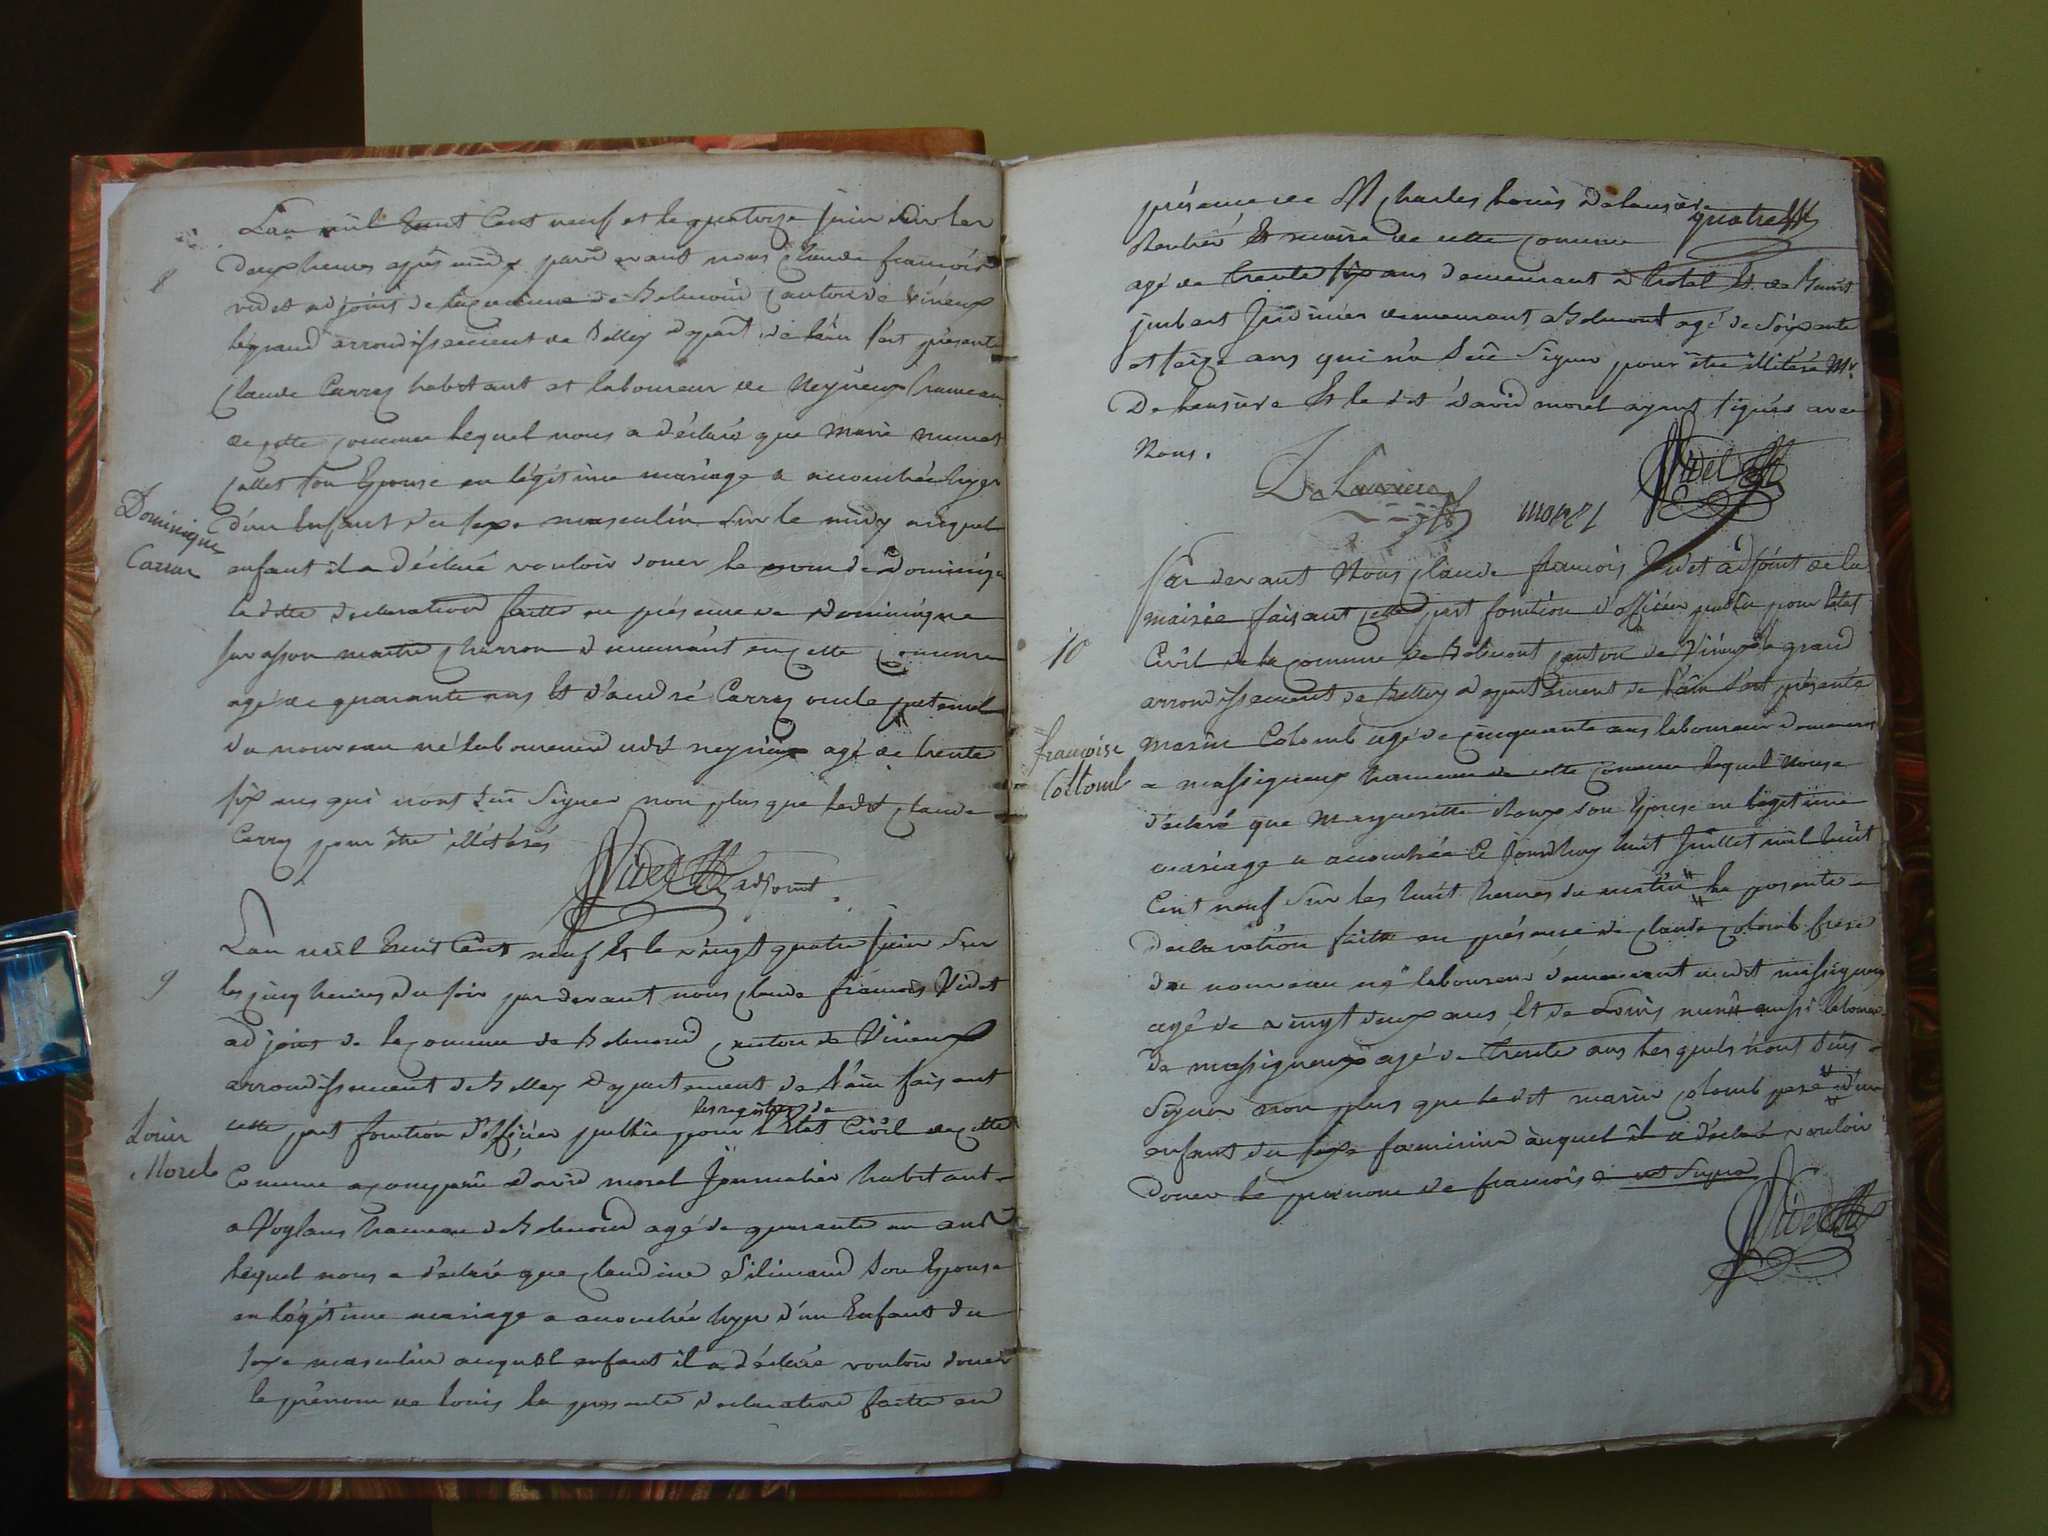 8
L'an mil huit Cent neuf et le quatorze juin sur les
deux heures après midy pardevant nous Claude françois
videt adjoint de la comune de Belmond Canton de virieux
le grand arrondissement de Belley depart. de l'ain s'est présenté
Claude Carrey habitant et laboureur de Neyrieux hameau
de cette comune lequel nous a déclaré que marie
son Epouse en légitime mariage a accouchée hyer
Dominique
Carrar
d'un Enfant du sexe masculin sur le midy auquel
enfant il a déclaré vouloir doner le nom de Dominique
la dite declaration faitte en présence de Dominique
maitre charron demeurant en cette comune
agé de quarante ans Et d'andré Carrey oncle paternel
du nouveau né laboureur udit neyrieux agé de trente
six ans qui n'ont sçu signer non plus que ledit Claude
Carrey pour être illétérés
Videt adjoint
9
L'an mil huit Cent neuf Et le vingt quatre juin sur
les cinq heures du soir par devant nous claude françois Videt
adjoint de la comune de Belmond canton de Virieux
arrondissement de Belley Département de l'ain faisant
les registres de
cette part fonction d'officier public pour l'Etat Civil de cette
Louis
Morel
Comune a comparu david morel Journalier habitant
a Voglans hameau de Belmond agé de quarante un ans
lequel nous a déclaré que claudine Silimand son Epouse
en légitime mariage a accouchée hyer d'un Enfant du
sexe masculin auquel enfant il a déclaré vouloir doner
le prénom de louis la presente declaration faitte en
présence de M Charles louis Delauzière
quatre
Rentier Et maire de cette comune
agé de trente six ans demeurant a hotel Et de Benoit
jmbert Jardinier demeurant a Belmont agé de soixante
et seize ans qui n'a sçu signer pour être illétéré Mr.
Delauzière Et le dit david morel ayant signés avec
nous.
Delauziere
morel
Videt
10
Par devant Nous claude françois Videt adjoint de la
mairie faisant cette part fonction d'officier public pour l'etat
Civil de la comune de Belmont canton de Virieux le grand
arrondissement de Belley departement de l'ain s'est présenté
françoise
Collomb
marin Colomb agé de cinquante ans laboureur demeurant
a massigneux hameau de cette comune lequel nous a
déclaré que Margueritte Roux son Epouse en légitime
mariage a accouchée ce jourdhuy huit Juillet mil huit
Cent neuf sur les huit heures du matin # la presente
declaration faite en présence de claude colomb frere
du nouveau né laboureur demeurant audit massigneux
agé de vingt deux ans Et de Louis aussi laboureur
de massigneux agé de trente ans lesquels n'ont sçus
signer non plus que ledit marin colomb pere # d'un
enfant du sexe foeminin auquel il a déclaré vouloir
doner le prenom de françoise ut supra
Videt